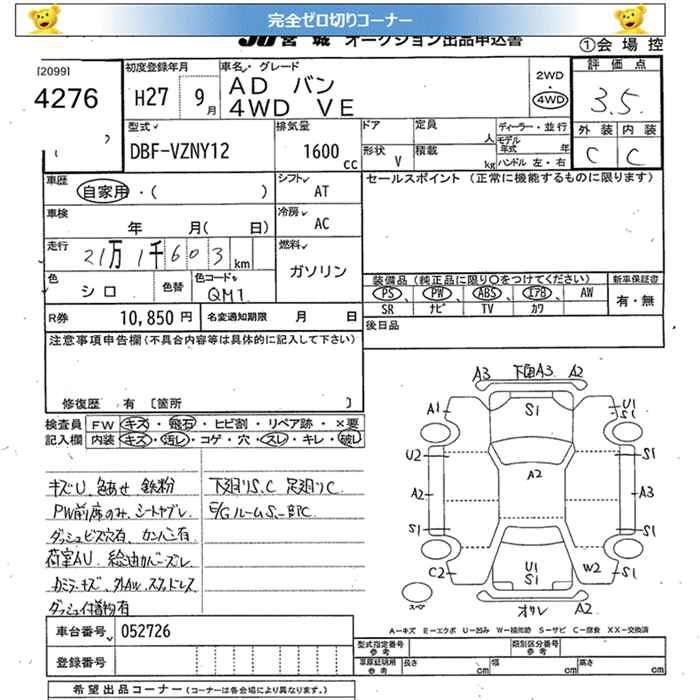 完全ゼロ切りコーナー
JU 宮城 オークション出品申込書
①会場控
[2099]
4276
初度登録年月
H27 9月
車名・グレード
AD バン
4WD VE
2WD
・
4WD
評価点
3.5
外装 内装
C C
型式
DBF-VZNY12
排気量
1600 cc
ドア 定員 人
形状 V 積載 kg
ディーラー・並行
モデル年式 年
ハンドル 左・右
車歴
自家用・( )
シフト AT
セールスポイント (正常に機能するものに限ります)
車検 年 月( 日)
冷房 AC
走行 21万1千603km
燃料
ガソリン
色 シロ 色替 色コード QM1
装備品 (純正品に限り○をつけてください)
PS、PW、ABS、エアB、AW
SR ナビ TV カワ
新車保証書
有・無
R券 10,850円 名変通知期限 月 日
後日品
注意事項申告欄(不具合内容等は具体的に記入して下さい)
修復歴 有 [箇所 ]
検査員記入欄
FW キズ・飛石・ヒビ割・リペア跡・×要
内装 キズ・汚レ・コゲ・穴・スレ・キレ・破レ
キズU、色あせ、鉄粉
PW前席のみ、シートヤブレ
ダッシュビス穴有、カンバン有
荷室AU、給油カバーズレ
カミラーキズ、外AW、スタッドレス
ダッシュ付着物有
下廻りS、C 足廻りC
E/GルームS、一部C
A3 下回A3 A2
A1 S1 U1 S1
U2 S1
A2
A2 A3
S1 S1
C2 U1 S1 W2 S1
スペア オサレ A2
A-キズ E-エクボ U-凹み W-補修跡 S-サビ C-腐食 XX-交換済
車台番号 052726
登録番号
型式指定番号 参考
類別区分番号 参考
車庫証明用 参考 長さ cm 幅 cm 高さ cm
希望出品コーナー (コーナーは各会場により異なります。)